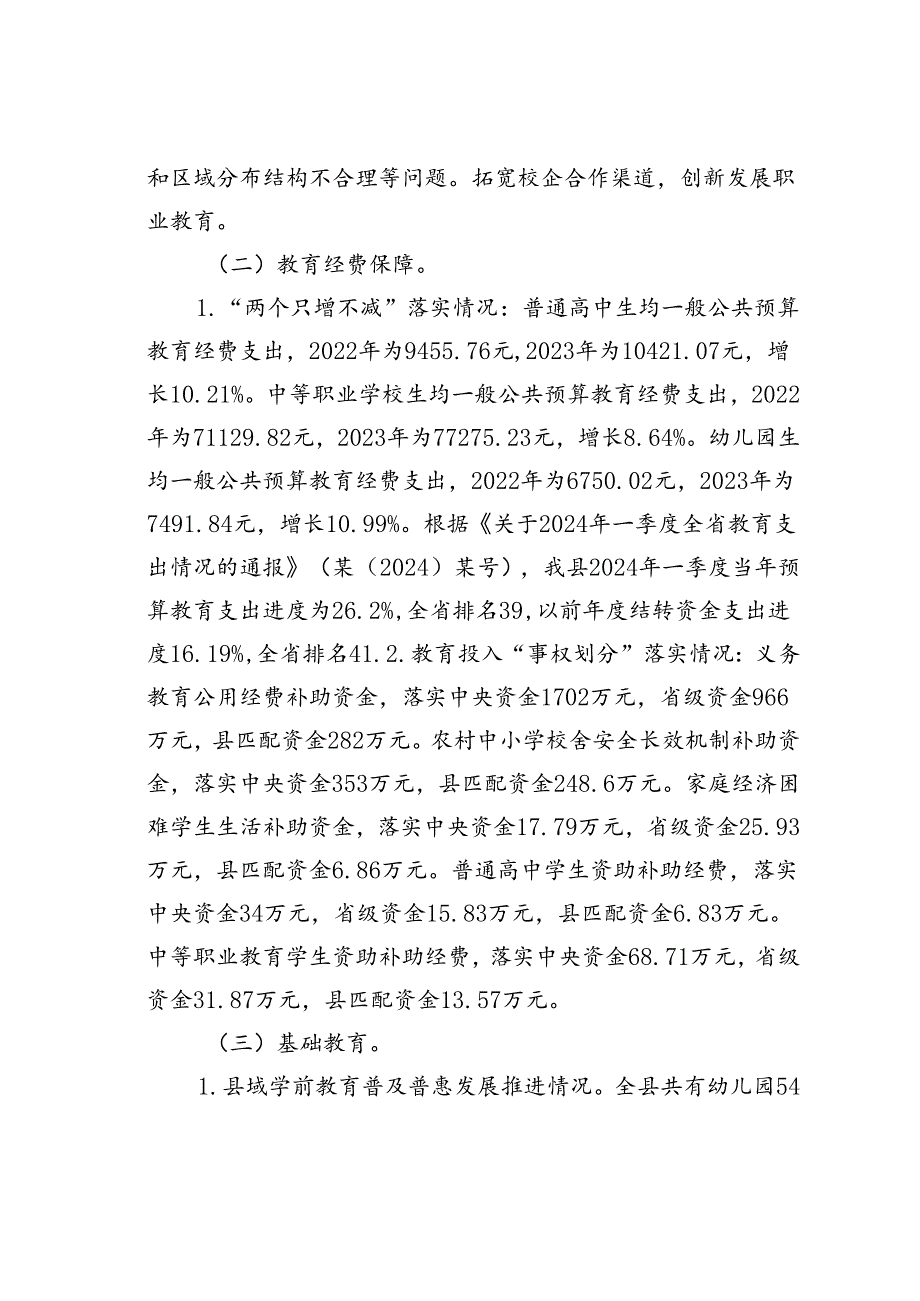 和区域分布结构不合理等问题。拓宽校企合作渠道，创新发展职
业教育。
（二）教育经费保障。
1.“两个只增不减”落实情况：普通高中生均一般公共预算
教育经费支出，2022年为9455.76元,2023年为10421.07元，增
长10.21%。中等职业学校生均一般公共预算教育经费支出，2022
年为71129.82元，2023年为77275.23元，增长8.64%。幼儿园生
均一般公共预算教育经费支出，2022年为6750.02元，2023年为
7491.84元，增长10.99%。根据《关于2024年一季度全省教育支
出情况的通报》（某（2024）某号），我县2024年一季度当年预
算教育支出进度为26.2%,全省排名39,以前年度结转资金支出进
度16.19%,全省排名41.2.教育投入“事权划分”落实情况：义务
教育公用经费补助资金，落实中央资金1702万元，省级资金966
万元，县匹配资金282万元。农村中小学校舍安全长效机制补助资
金，落实中央资金353万元，县匹配资金248.6万元。家庭经济困
难学生生活补助资金，落实中央资金17.79万元，省级资金25.93
万元，县匹配资金6.86万元。普通高中学生资助补助经费，落实
中央资金34万元，省级资金15.83万元，县匹配资金6.83万元。
中等职业教育学生资助补助经费，落实中央资金68.71万元，省级
资金31.87万元，县匹配资金13.57万元。
（三）基础教育。
1.县域学前教育普及普惠发展推进情况。全县共有幼儿园54